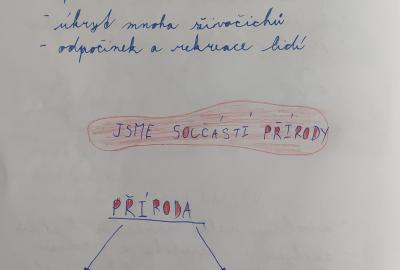 - úkryt mnoha živočichů
- odpočinek a rekreace lidí
JSME SOUČÁSTÍ PŘÍRODY
PŘÍRODA